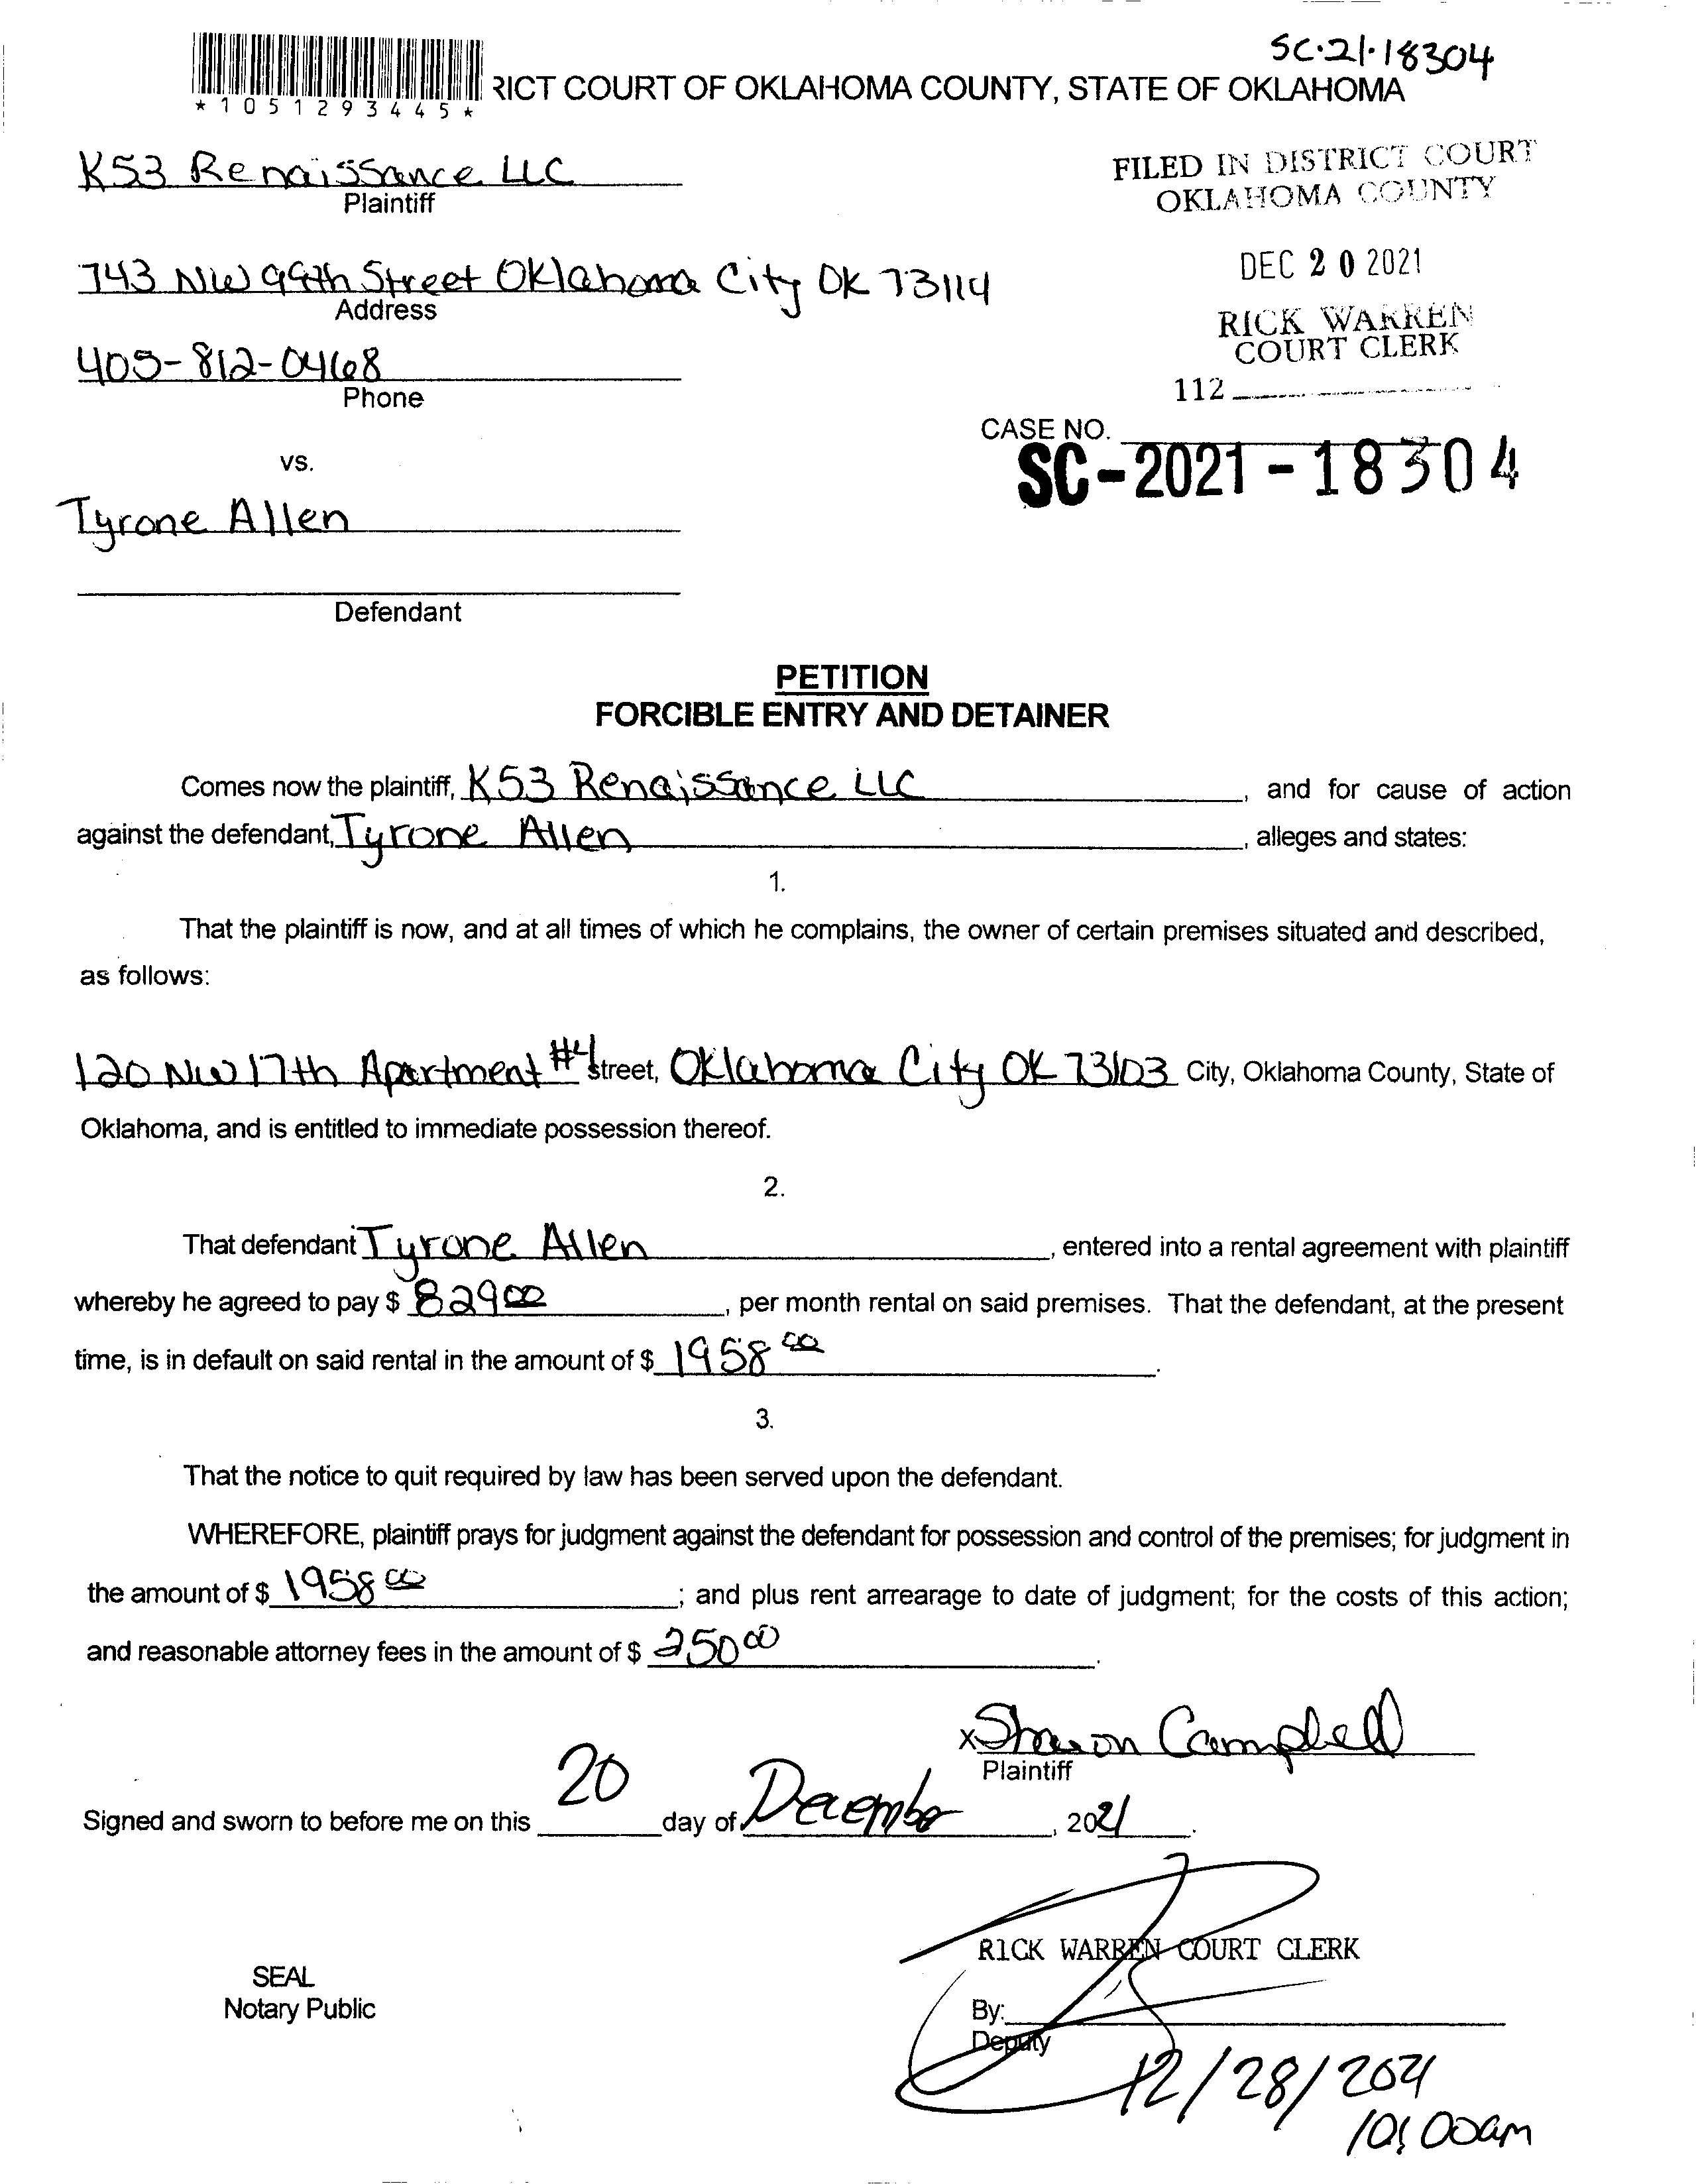 SC-21-18304
*1051293445*
RICT COURT OF OKLAHOMA COUNTY, STATE OF OKLAHOMA
K53 Renaissance LLC
Plaintiff
FILED IN DISTRICT COURT
OKLAHOMA COUNTY
743 NW 99th Street Oklahoma City OK 73114
Address
DEC 20 2021
RICK WARREN
COURT CLERK
405-812-0468
Phone
112
CASE NO.
SC-2021-18304
vs.
Tyrone Allen
Defendant
PETITION
FORCIBLE ENTRY AND DETAINER
Comes now the plaintiff, K53 Renaissance LLC, and for cause of action
against the defendant, Tyrone Allen, alleges and states:
1.
That the plaintiff is now, and at all times of which he complains, the owner of certain premises situated and described,
as follows:
120 NW 17th Apartment #4 Street, Oklahoma City OK 73103 City, Oklahoma County, State of
Oklahoma, and is entitled to immediate possession thereof.
2.
That defendant Tyrone Allen, entered into a rental agreement with plaintiff
whereby he agreed to pay $ 829 00, per month rental on said premises. That the defendant, at the present
time, is in default on said rental in the amount of $ 1958 00.
3.
That the notice to quit required by law has been served upon the defendant.
WHEREFORE, plaintiff prays for judgment against the defendant for possession and control of the premises; for judgment in
the amount of $ 1958 00; and plus rent arrearage to date of judgment; for the costs of this action;
and reasonable attorney fees in the amount of $ 250 00.
x Sharon Campbell
Plaintiff
Signed and sworn to before me on this 20 day of December, 2021.
RICK WARREN COURT CLERK
SEAL
Notary Public
By:
Deputy
12/28/2021
10:00am